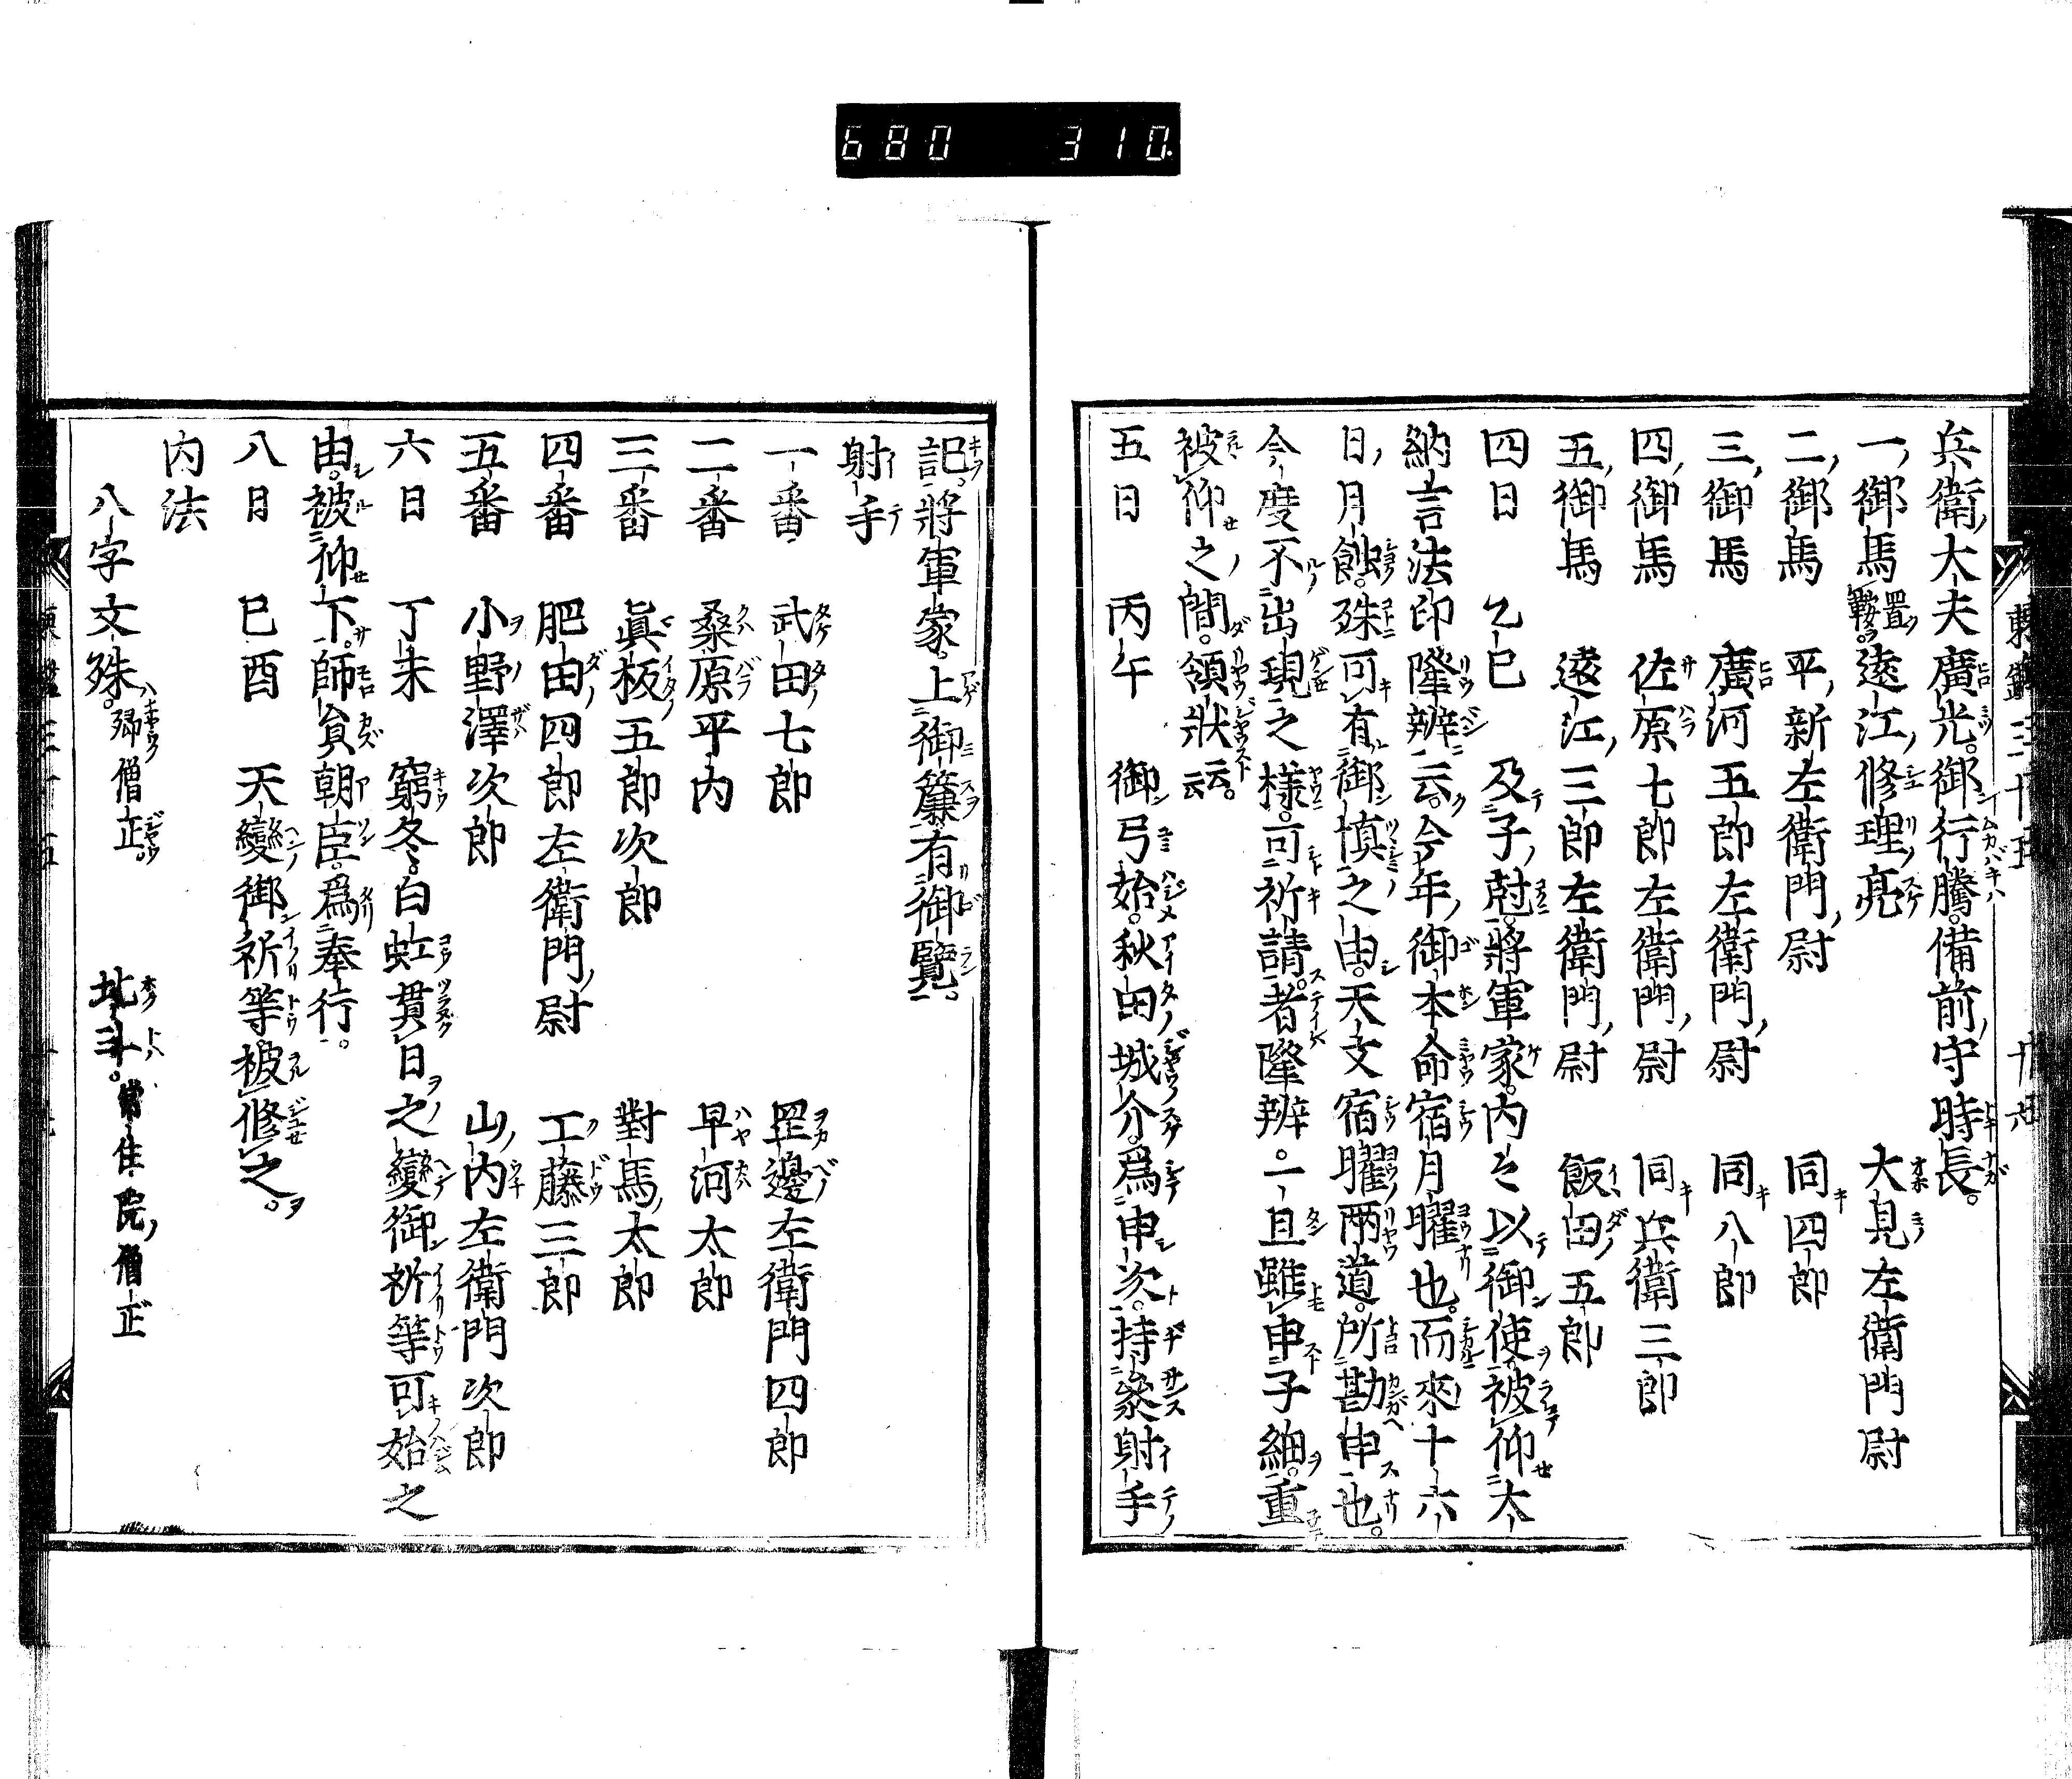 680 310
兵衛大夫廣光。御行騰。備前守時長。
一御馬置鞍。遠江修理亮 大見左衛門尉
二御馬 平新左衛門尉 同四郎
三御馬 廣河五郎左衛門尉 同八郎
四御馬 佐原七郎左衛門尉 同兵衛三郎
五御馬 遠江三郎左衛門尉 飯田五郎
四日 乙巳 及子尅。將軍家。内々以御使被仰大
納言法印隆辨云。今年御本命宿月曜也。而來十六
日月蝕。殊可有御慎之由。天文宿曜兩道。所勘申也。
今度不出現之樣。可祈請。者隆辨。一旦雖申子細。重
被仰之間。領狀云云。
五日 丙午 御弓始。秋田城介。爲申次。持參射手
記。將軍家。上御簾有御覽。
射手
一番 武田七郎 罡邊左衛門四郎
二番 桑原平内 早河太郎
三番 眞板五郎次郎 對馬太郎
四番 肥田四郎左衛門尉 工藤三郎
五番 小野澤次郎 山内左衛門次郎
六日 丁未 窮冬。白虹貫日之變御祈等可始之
由。被仰下。師員朝臣。爲奉行。
八日 巳酉 天變御祈等被修之。
内法
八字文殊。僧正。 北斗。常住院僧正